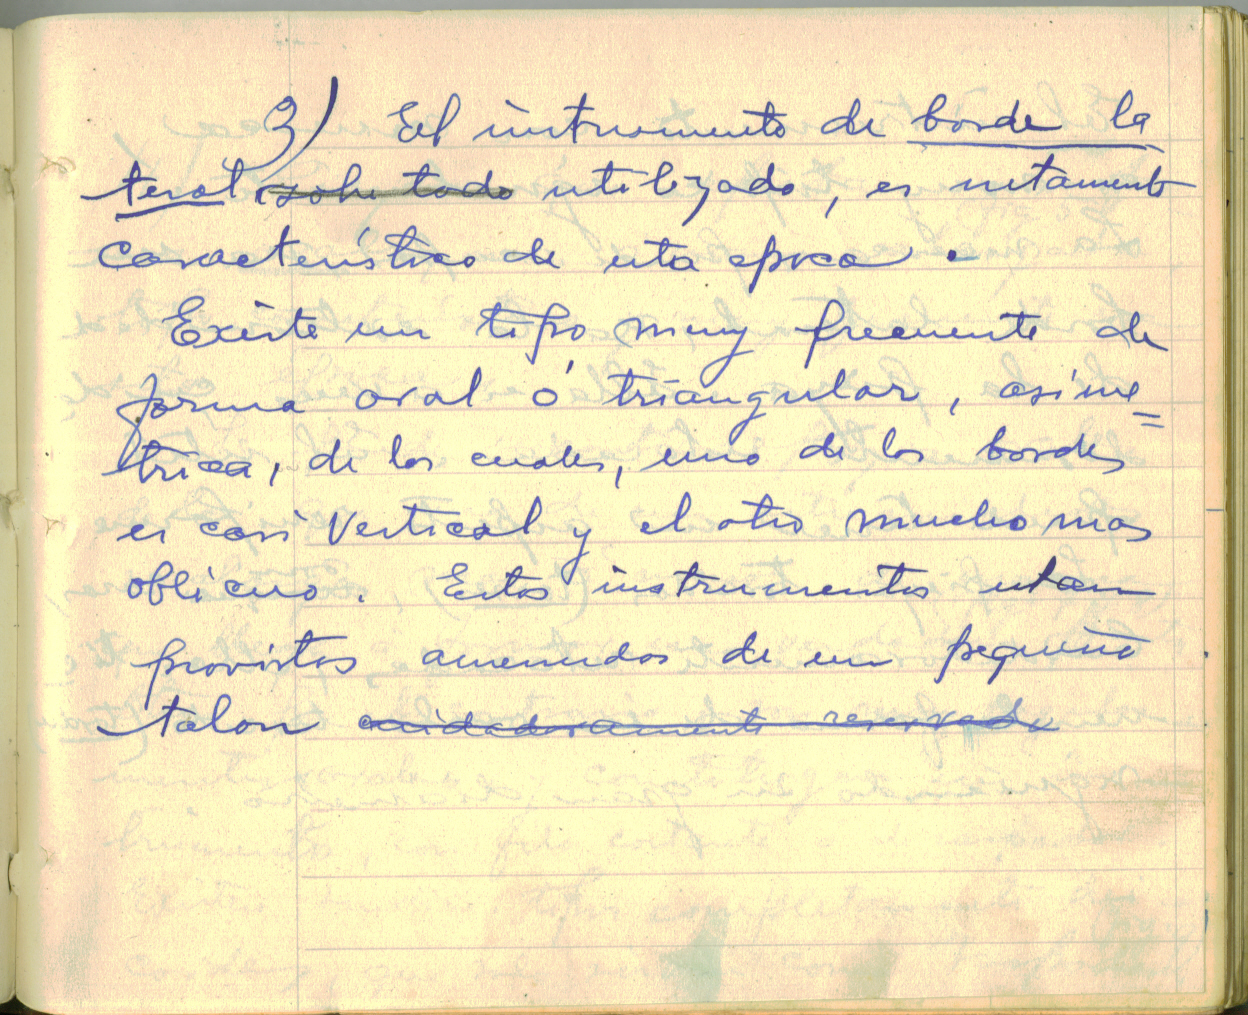 3) El instrumento de borde la
teral sobre todo utilizado, es netamente
caracteristico de esta epoca.
Existe un tipo muy frecuente de
forma oval ó triangular, asime=
trica, de los cuales, uno de los bordes
es casi vertical y el otro mucho mas
oblicuo. Estos instrumentos estan
provistos amenudos de un pequeño
talon cuidadosamente reservado